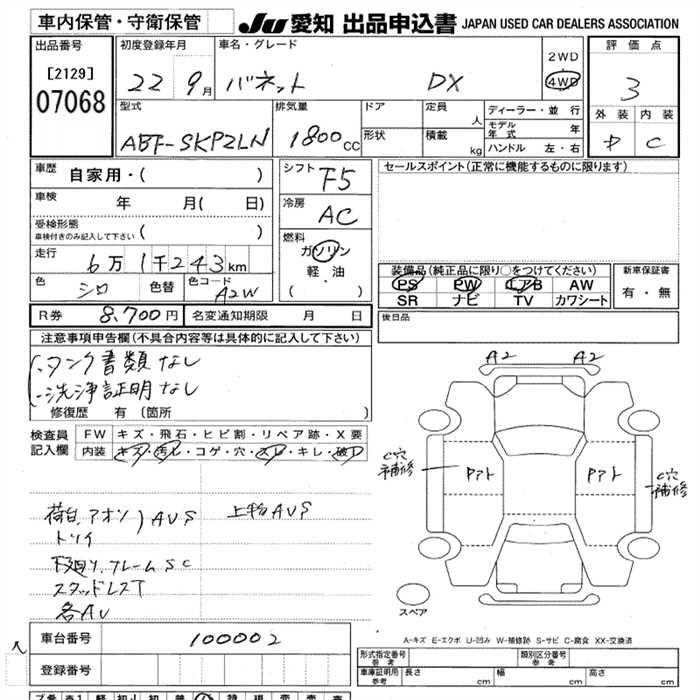 車内保管・守衛保管 JU 愛知 出品申込書 JAPAN USED CAR DEALERS ASSOCIATION
出品番号 初度登録年月 車名・グレード 2WD 評価点
[2129] 22 9月 バネット DX 4WD 3
07068
型式 排気量 ドア 定員 人 ディーラー・並行 外装 内装
ABF-SKP2LN 1800cc 形状 積載 kg モデル年式 年 C
ハンドル 左・右
車歴 自家用・( ) シフト F5 セールスポイント(正常に機能するものに限ります)
車検 年 月( 日) 冷房 AC
受検形態 ( )
車検付きのみ記入して下さい
燃料 ガソリン
走行 6万1千243km 軽・油
・( )
装備品(純正品に限り○をつけてください) 新車保証書
色 シロ 色替 色コード A2W PS PW エアB AW 有・無
SR ナビ TV カワシート
R券 8,700円 名変通知期限 月 日 後日品
注意事項申告欄(不具合内容等は具体的に記入して下さい)
・タンク書類なし
・洗浄証明なし
修復歴 有 (箇所
A2 A2
検査員 FW キズ・飛石・ヒビ割・リペア跡・X要
記入欄 内装 キズ・汚レ・コゲ・穴・スレ・キレ・破レ
C穴 補修 C穴 補修
AVS 上物AVS
下廻リ、フレームSC
スタッドレスT
各AU
スペア
車台番号 100002
A-キズ E-エクボ U-凹み W-補修跡 S-サビ C-腐食 XX-交換済
登録番号
形式指定番号 参考 類別区分番号 参考
車庫証明用 参考 長さ cm 幅 cm 高さ cm